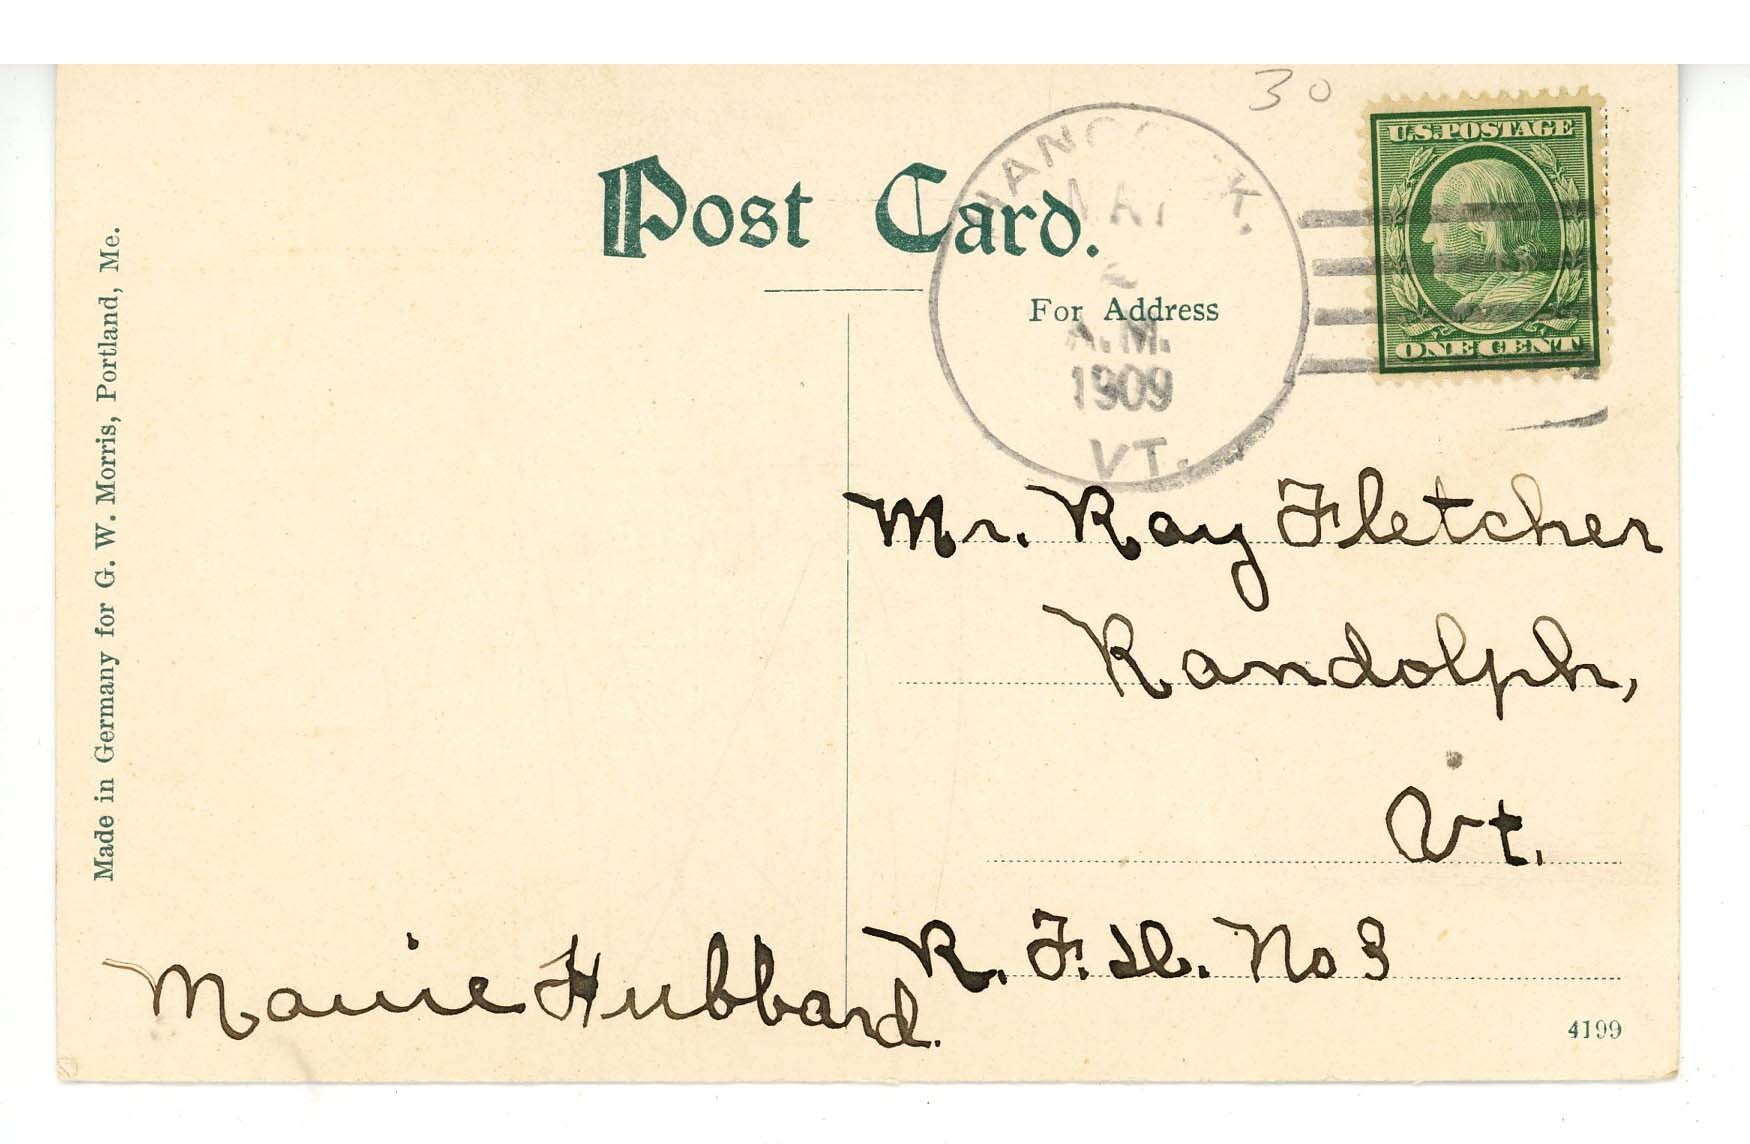 30
U.S. POSTAGE
ONE CENT
HANCOCK,
MAY
A.M.
1909
VT.
Post Card.
For Address
Made in Germany for G. W. Morris, Portland, Me.
Mr. Ray Fletcher
Randolph,
Vt.
R. F. D. No 3
Hubbard.
4199